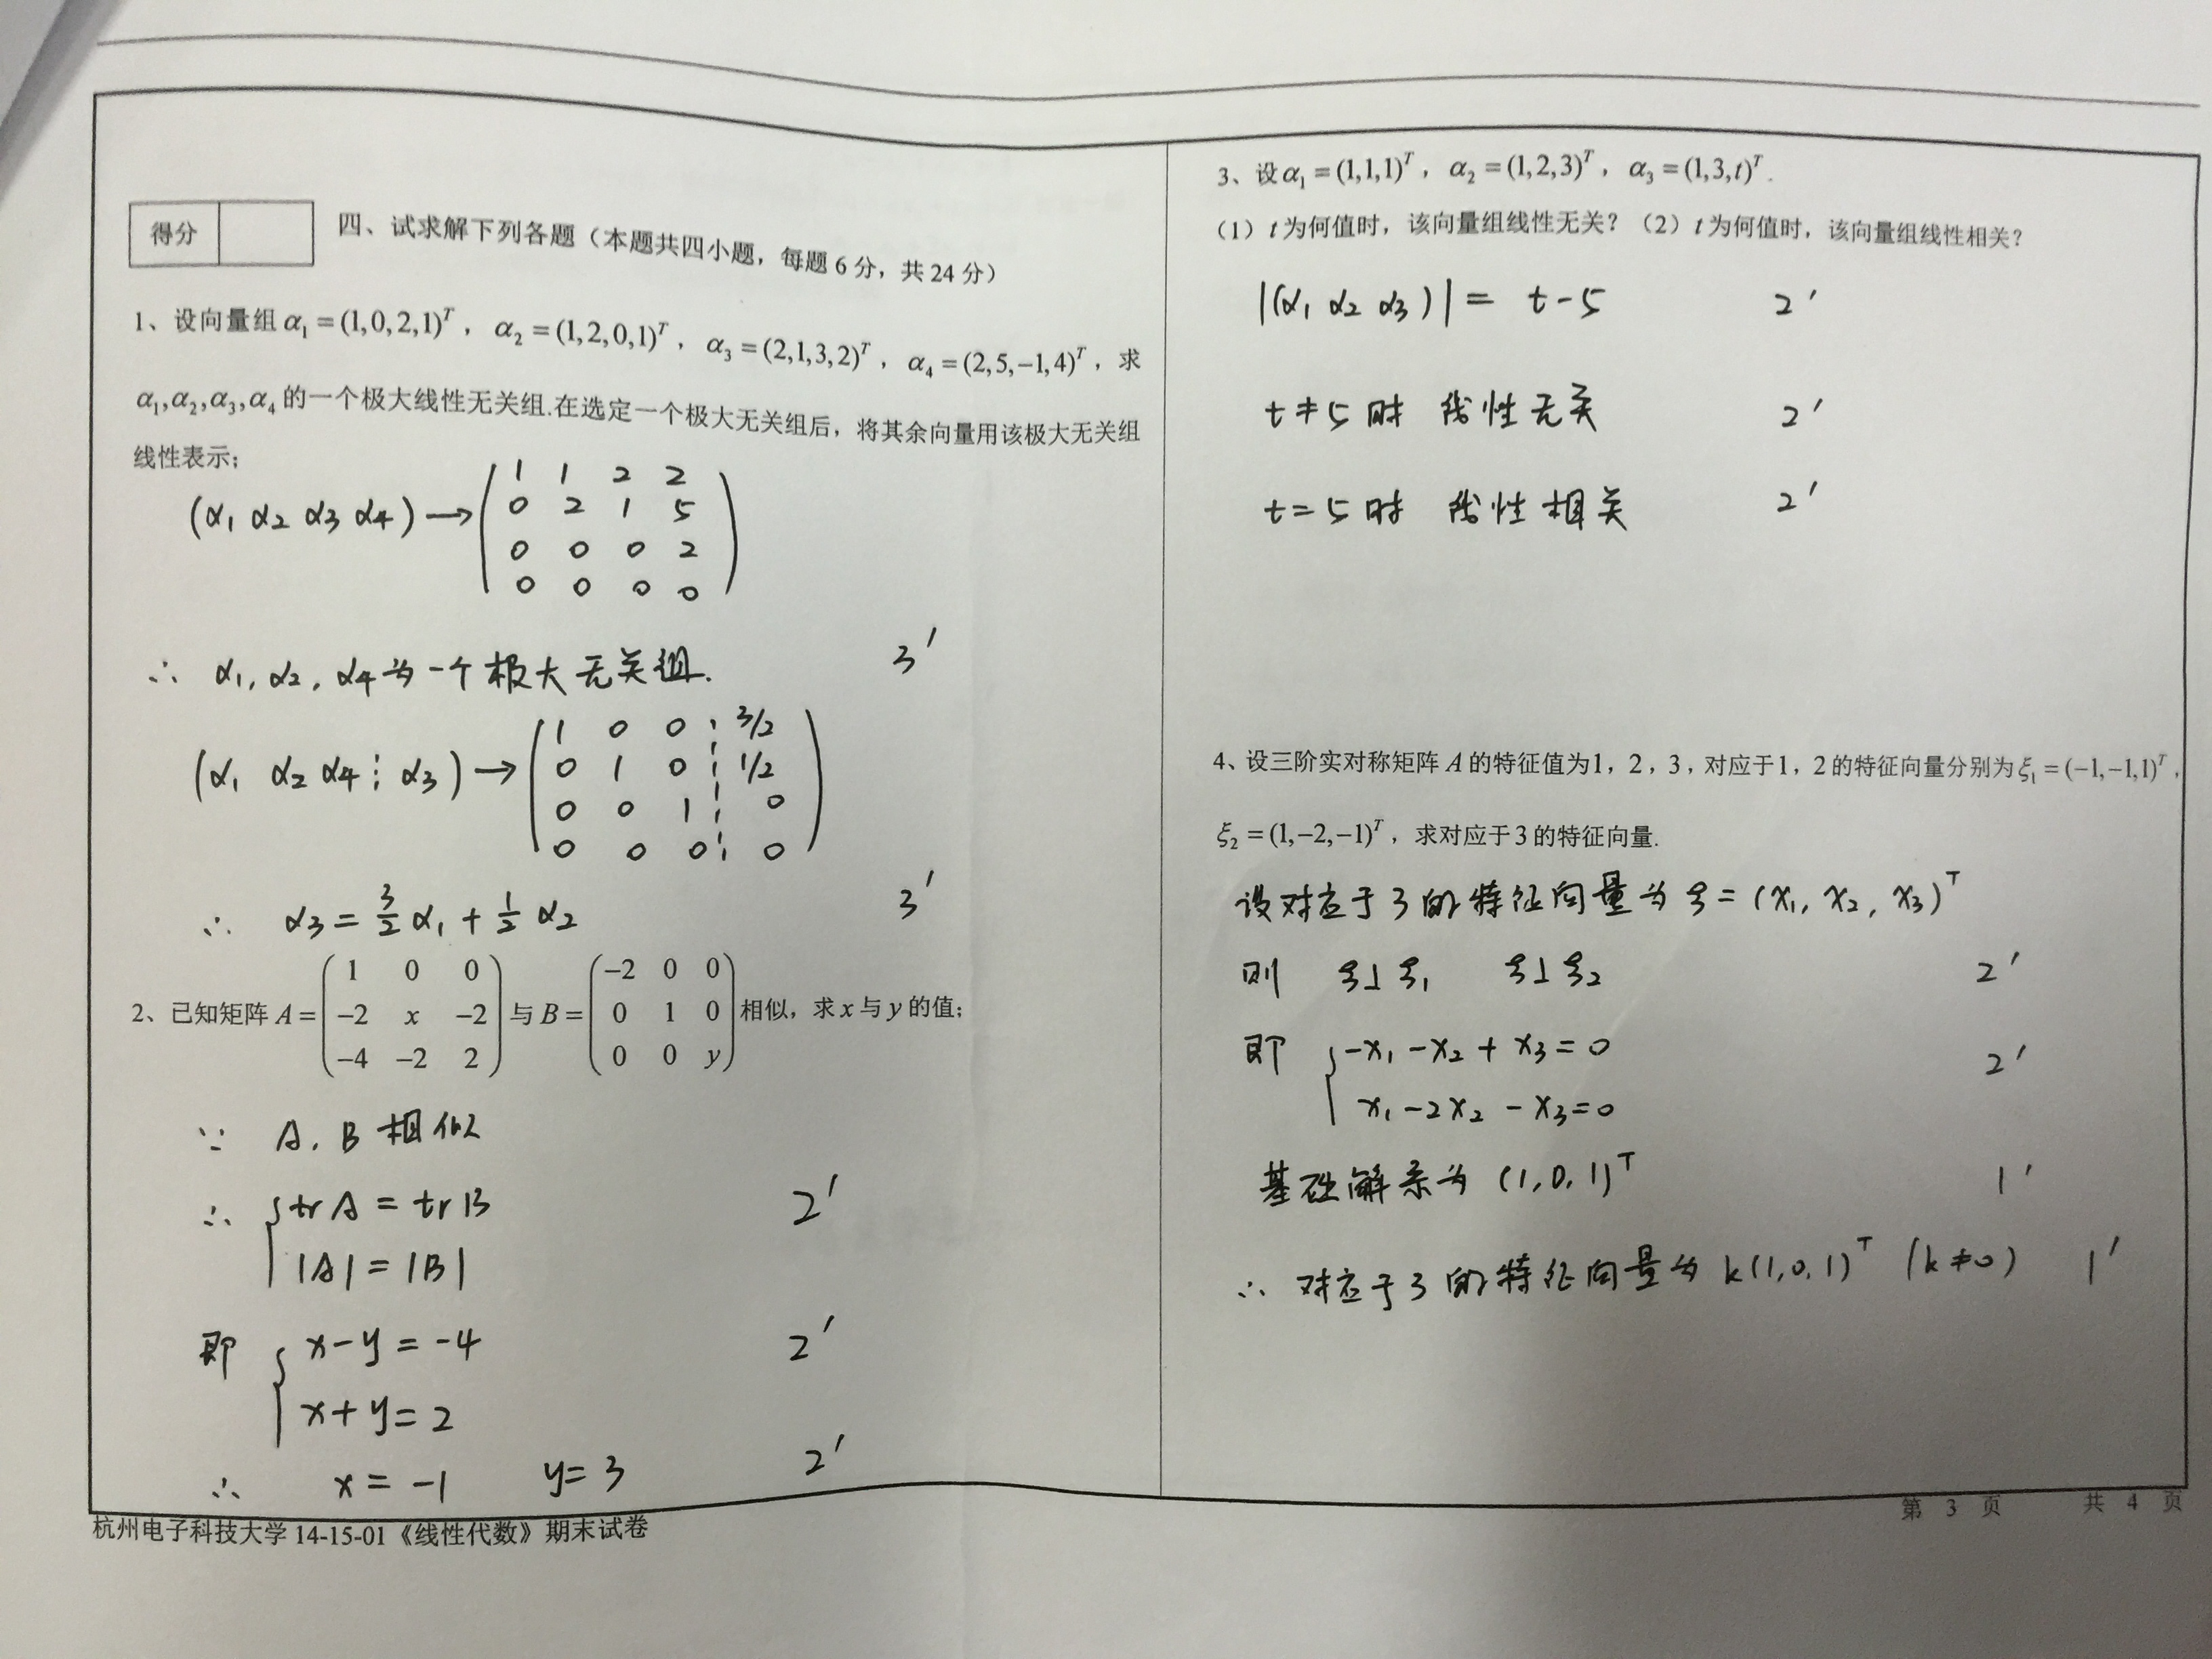 得分
四、试求解下列各题（本题共四小题，每题6分，共24分）
1、设向量组 α₁=(1,0,2,1)ᵀ，α₂=(1,2,0,1)ᵀ，α₃=(2,1,3,2)ᵀ，α₄=(2,5,−1,4)ᵀ，求
α₁,α₂,α₃,α₄ 的一个极大线性无关组.在选定一个极大无关组后，将其余向量用该极大无关组
线性表示；
1 1 2 2
(α₁ α₂ α₃ α₄) → 0 2 1 5
0 0 0 2
0 0 0 0
∴ α₁, α₂, α₄为一个极大无关组. 3′
1 0 0 ⋮ 3/2
(α₁ α₂ α₄ ⋮ α₃) → 0 1 0 ⋮ 1/2
0 0 1 ⋮ 0
0 0 0 ⋮ 0
∴ α₃ = 3/2 α₁ + 1/2 α₂ 3′
1 0 0 −2 0 0
2、已知矩阵 A= −2 x −2 与 B= 0 1 0 相似，求 x 与 y 的值；
−4 −2 2 0 0 y
∵ A, B 相似
∴ { trA = trB 2′
|A| = |B|
即 { x−y = −4 2′
x+y = 2
∴ x = −1 y = 3 2′
3、设 α₁=(1,1,1)ᵀ，α₂=(1,2,3)ᵀ，α₃=(1,3,t)ᵀ.
（1）t 为何值时，该向量组线性无关？（2）t 为何值时，该向量组线性相关？
|(α₁ α₂ α₃)| = t−5 2′
t≠5时 线性无关 2′
t=5时 线性相关 2′
4、设三阶实对称矩阵 A 的特征值为1，2，3，对应于1，2的特征向量分别为 ξ₁=(−1,−1,1)ᵀ，
ξ₂=(1,−2,−1)ᵀ，求对应于3的特征向量.
设对应于3的特征向量为 ξ = (x₁, x₂, x₃)ᵀ
则 ξ⊥ξ₁ ξ⊥ξ₂ 2′
即 { −x₁ −x₂ + x₃ = 0 2′
x₁ −2x₂ −x₃ = 0
基础解系为 (1,0,1)ᵀ 1′
∴ 对应于3的特征向量为 k(1,0,1)ᵀ (k≠0) 1′
杭州电子科技大学 14-15-01《线性代数》期末试卷
第 3 页 共 4 页